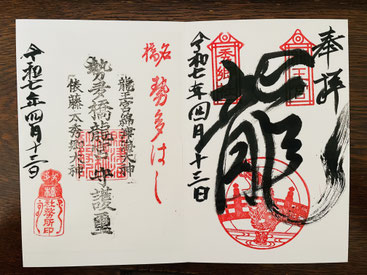 奉拝
龍
令和七年四月十三日
名橋
勢多はし
龍王宮秀郷社大神
勢多橋龍宮守護璽
俵藤太秀郷大神
令和七年四月十三日
社務所印